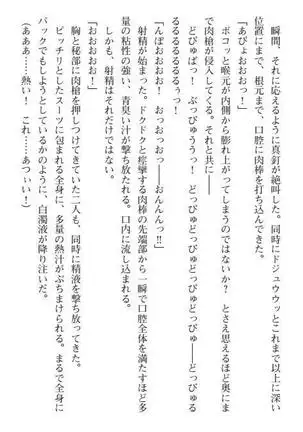 瞬間、それに応えるように真釘が絶叫した。同時にドジュウウッとこれまで以上に深い
位置にまで、根元まで、口腔に肉棒を打ち込んできた。
「あぴょおおおお！」
ボコッと喉元が内側から膨れ上がってしまうのではないか？　とさえ思えるほど奥にま
で肉槍が侵入してくる。それと共に――
どっぴゅばっ！　ぶっぴゅううっ！　どっぴゅどっぴゅどっぴゅどっぴゅ――どっぴゅる
るるるるるるぅっ！
「んぽおおおおっ！　おっおっおっ――おんんんっ!!」
射精が始まった。ドクドクと痙攣する肉棒の先端部から一瞬で口腔全体を満たすほど多
量の粘性の強い、青臭い汁が撃ち放たれる。口内に流し込まれる。
しかも、射精はそれだけではない。
「おおおおお！」
胸と秘部に肉槍を押しつけてきていた二人も、同時に精液を撃ち放ってきた。
ピッチリとしたスーツに包まれる全身に、多量の熱汁がぶちまけられる。まるで全身に
パックでもしようとしているかのように、白濁液が降り注いだ。
（あああ……熱い！　これ……あつぃぃ！）